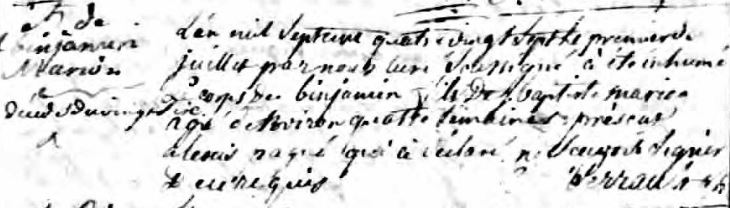 St de
binjamin
Marion
L'an mil Septcent quatrevingt Sept le premier de
juillet par nous Curé Soussigné a été inhumé
le corps de binjamin fils De baptiste marion
agé d'environ quatre Semaines présens
alexis qui a déclaré ne Sçavoir Signer
De ce requis